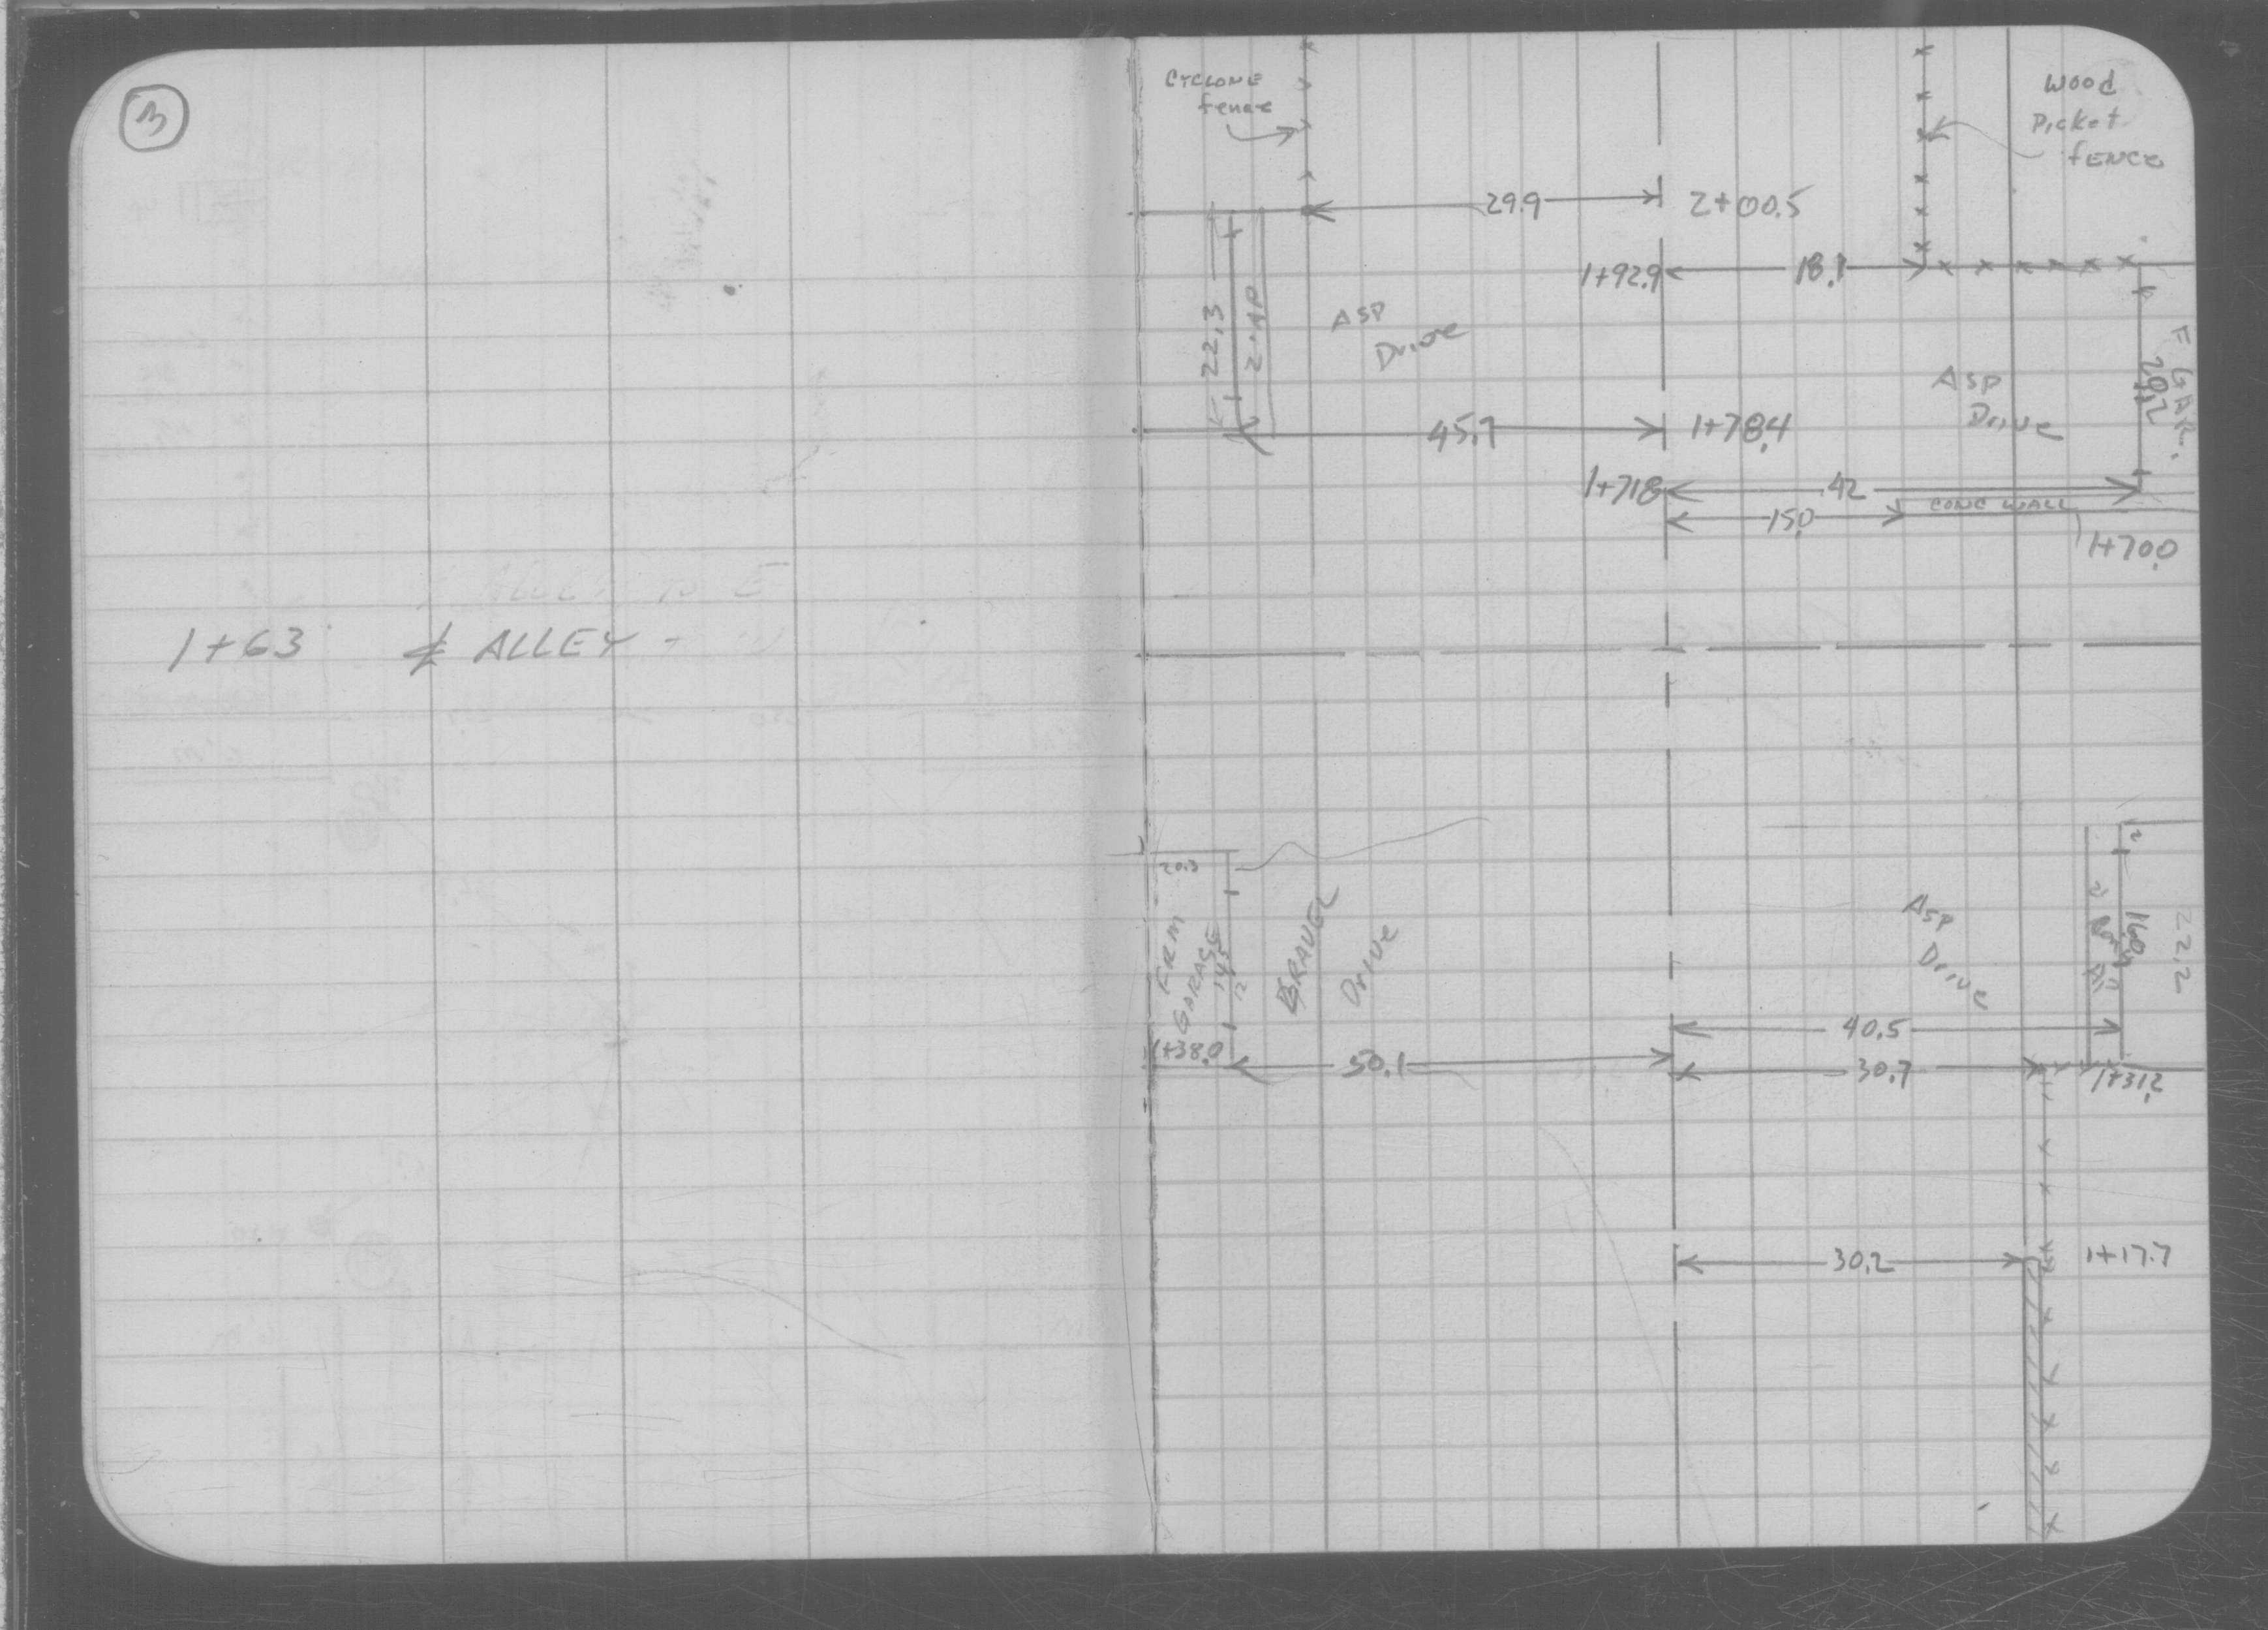 3
1+63 ⅊ ALLEY
CYCLONE
fence
Wood
Picket
fENCE
29.9
2+00.5
1+92.9
18.1
22.3
ASP
Drive
F GAR.
29.2
ASP
Drive
45.7
1+78.4
1+71.8
42
CONC WALL
15.0
1+70.0
20.3
FRM
GARAGE
14.5
12
GRAVEL
Drive
ASP
Drive
2
16.0
22.2
1+38.0
40.5
50.1
30.7
1+31.2
30.2
1+17.7